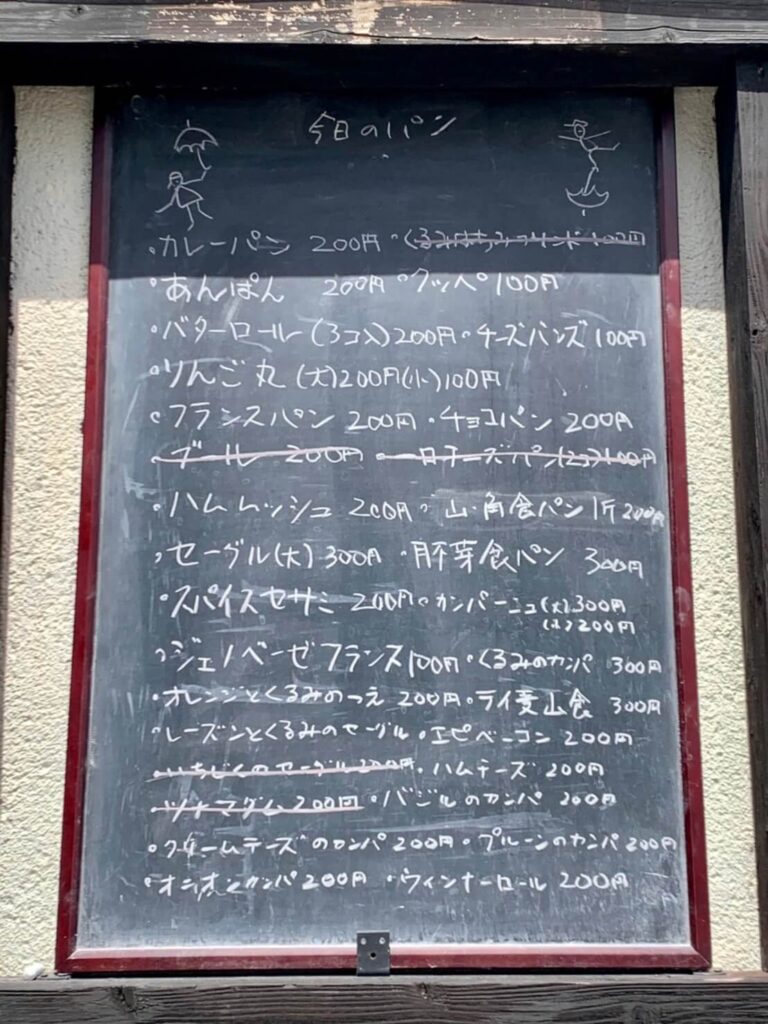 今日のパン
・カレーパン 200円 ・くるみはちみつサンド 100円
・あんぱん 200円 ・クッペ 100円
・バターロール(3コ入)200円 ・チーズバンズ 100円
・りんご丸(大)200円(小)100円
・フランスパン 200円 ・チョコパン 200円
・ブール 200円 ・一口チーズパン(2コ)100円
・ハムムッシュ 200円 ・山・角食パン 1斤 200円
・セーグル(大)300円 ・胚芽食パン 300円
・スパイスセサミ 200円 ・カンパーニュ(大)300円
(小)200円
・ジェノベーゼフランス100円 ・くるみのカンパ 300円
・オレンジとくるみのつえ 200円 ・ライ麦山食 300円
・レーズンとくるみのセーグル ・エピベーコン 200円
・いちじくのセーグル 200円 ・ハムチーズ 200円
・ツナマヨハム 200円 ・バジルのカンパ 200円
・クリームチーズのカンパ 200円 ・プルーンのカンパ 200円
・オニオンカンパ 200円 ・ウィンナーロール 200円